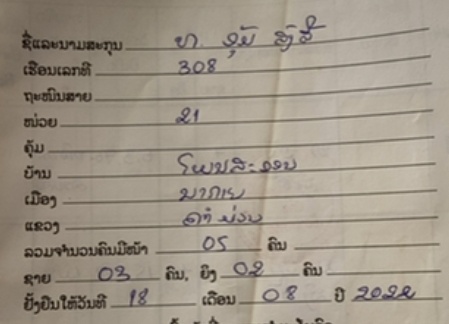 ຊື່ແລະນາມສະກຸນ ທ. ຈຸມ
ເຮືອນເລກທີ 308
ຖະໜົນສາຍ
ໜ່ວຍ 21
ຄຸ້ມ
ບ້ານ ໂພນສະອາບ
ເມືອງ ນາກາຍ
ແຂວງ ຄຳມ່ວນ
ລວມຈຳນວນຄົນມີໜ້າ 05 ຄົນ
ຊາຍ 03 ຄົນ, ຍິງ 02 ຄົນ
ຢັ້ງຢືນໃຫ້ວັນທີ 18 ເດືອນ 08 ປີ 2022